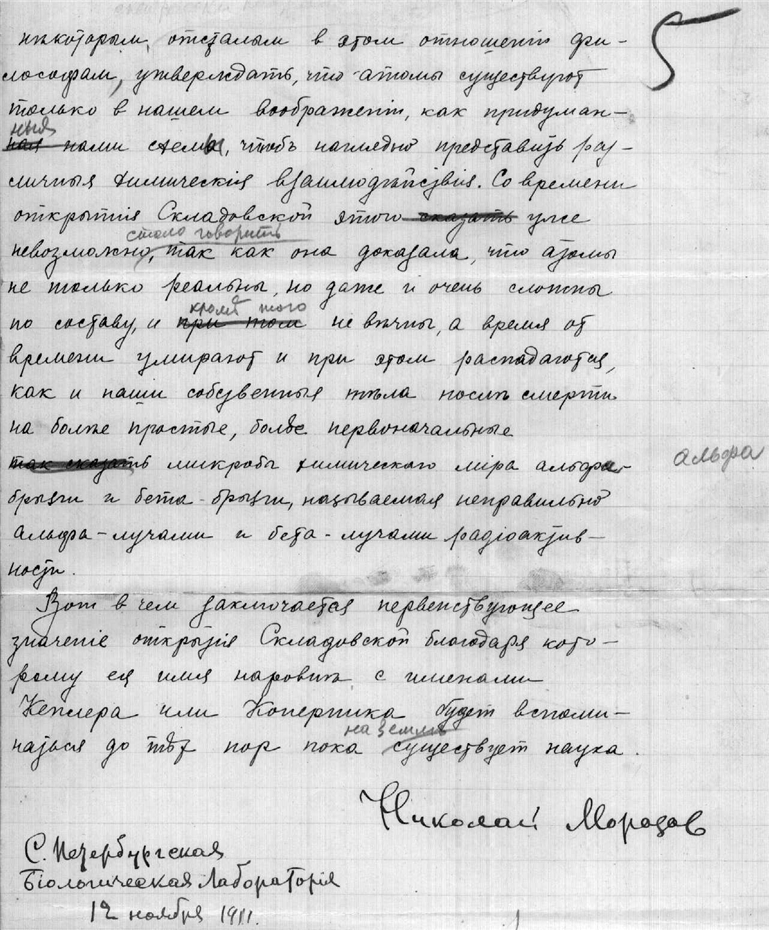 5
нѣкоторым, отсталым в этом отношенiи фи-
лософам, утверждать, что атомы существуют
только в нашем воображенiи, как придуман-
ныя
ная нами схемы, чтобъ наглядно представить раз-
личныя химическiя взаимодѣйствiя. Со времени
открытiя Складовской этого сказать уже
стало говорить
невозможно, так как она доказала, что атомы
не только реальны, но даже и очень сложны
кромѣ того
по составу, и при том не вѣчны, а время от
времени умирают и при этом распадаются,
как и наши собственныя тѣла послѣ смерти
на болѣе простые, болѣе первоначальные
так сказать микробы химического мiра альфа-
альфа
брызги и бета-брызги, называемая неправильно
альфа-лучами и бета-лучами радiоактив-
ности.
Вот в чем заключается первенствующее
значенiе открытiя Складовской благодаря кото-
рому ея имя наровнѣ с именами
Кеплера или Коперника будет вспоми-
на землѣ
наться до тѣх пор пока существует наука.
Николай Морозов
С. Петербургская
Бiологическая Лабораторiя
12 ноября 1911.